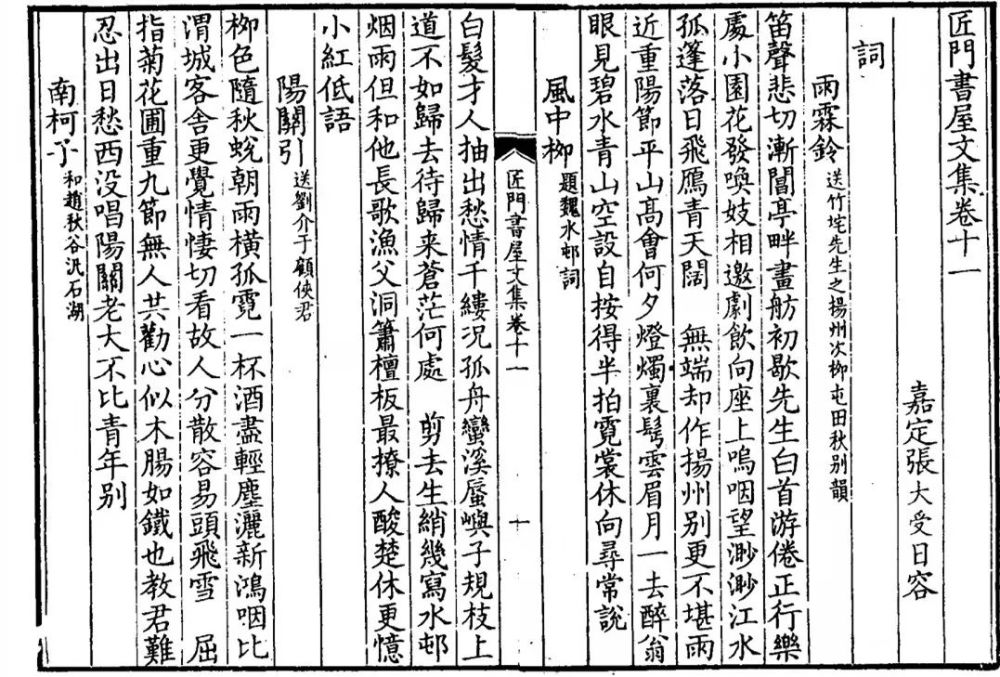 匠門書屋文集卷十一
嘉定張大受日容
詞
雨霖鈴送竹垞先生之揚州次柳屯田秋別韻
笛聲悲切漸閶亭畔畫舫初歇先生白首游倦正行樂
處小園花發喚妓相邀劇飲向座上嗚咽望渺渺江水
孤篷落日飛鴈青天闊　無端却作揚州别更不堪雨
近重陽節平山髙會何夕燈燭裏髩雲眉月一去醉翁
眼見碧水青山空設自按得半拍霓裳休向尋常說
風中栁題魏水邨詞
匠門書屋文集卷十一
十
白髮才人抽出愁情千縷况孤舟蠻溪蜃嶼子規枝上
道不如歸去待歸来蒼茫何處　剪去生綃幾寫水邨
烟雨但和他長歌漁父洞簫檀板最撩人酸楚休更憶
小紅低語
陽關引送劉介于顧俠君
栁色隨秋蛻朝雨橫孤霓一杯酒盡輕塵灑新鴻咽比
渭城客舎更覺情悽切看故人分散容易頭飛雪　屈
指菊花圃重九節無人共勸心似木腸如鐵也教君難
忍出日愁西没唱陽關老大不比青年别
南柯子和趙秋谷汎石湖